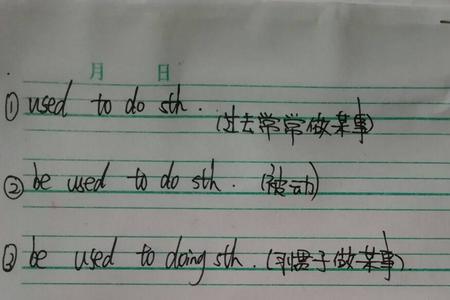 月 日
① used to do sth. (过去常常做某事)
② be used to do sth. (被动)
③ be used to doing sth. (习惯于做某事).